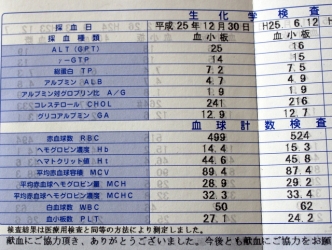 生化学検査
採血日 平成25年12月30日 H25 6.12
採血種類 血小板 血小板
ALT (GPT) 25 16
γ-GTP 14 15
総蛋白 TP 7.2 7.5
アルブミン ALB 4.7 4.9
アルブミン対グロブリン比 A/G 1.9 1.9
コレステロール CHOL 241 216
グリコアルブミン GA 12.9 12.7
血球計数検査
赤血球数 RBC 499 524
ヘモグロビン濃度 Hb 14.4 15.3
ヘマトクリット値 Ht 44.6 45.8
平均赤血球容積 MCV 89.4 87.4
平均赤血球ヘモグロビン量 MCH 28.9 29.2
平均赤血球ヘモグロビン濃度 MCHC 32.3 33.4
白血球数 WBC 50 62
血小板数 PLT 27.1 24.2
検査結果は医療用検査と同等の方法により測定しました。
献血にご協力頂き、ありがとうございました。今後とも献血にご協力をお願